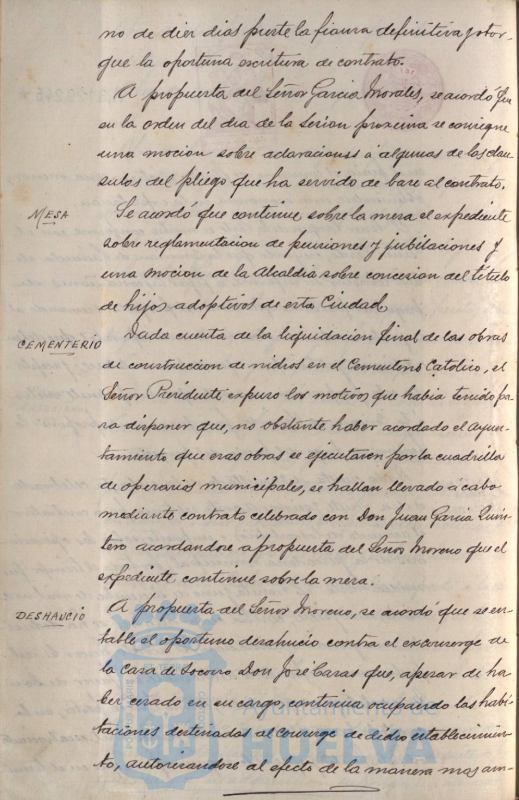 no de diez dias preste la fianza definitiva y otor-
gue la oportuna escritura de contrato.
A propuesta del Señor Garcia Morales, se acordó que
en la orden del dia de la sesion proxima se consigne
una mocion sobre aclaraciones á algunas de las clau-
sulas del pliego que ha servido de base al contrato.
MESA
Se acordó que continue sobre la mesa el expediente
sobre reglamentacion de pensiones y jubilaciones y
una mocion de la Alcaldia sobre concesion del titulo
de hijos adoptivos de esta Ciudad.
CEMENTERIO
Dada cuenta de la liquidacion final de las obras
de construccion de nichos en el Cementerio Catolico, el
Señor Presidente expuso los motivos que habia tenido pa-
ra disponer que, no obstante haber acordado el ayun-
tamiento que esas obras se ejecutasen por la cuadrilla
de operarios municipales, se hallan llevado á cabo
mediante contrato celebrado con Don Juan Garcia Quin-
tero acordandose á propuesta del Señor Moreno que el
expediente continue sobre la mesa.
DESHAUCIO
A propuesta del Señor Moreno, se acordó que se en-
table el oportuno desahucio contra el exconserge de
la Casa de Socorro Don José Casas que, apesar de ha-
ber cesado en su cargo, continua ocupando las habi-
taciones destinadas al Conserge de dicho establecimien-
to, autorizandose al efecto de la manera mas am-
Ayuntamiento de
HUELVA